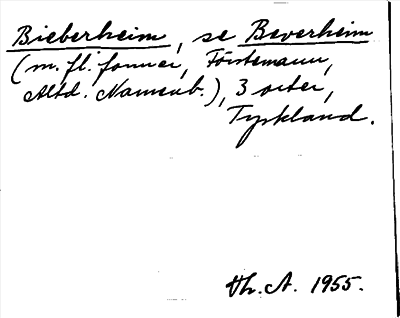 Bieberheim, se Beverheim
(m. fl. former, Förstemann,
Altd. Namenb.), 3 orter,
Tyskland.
Th. A. 1955.